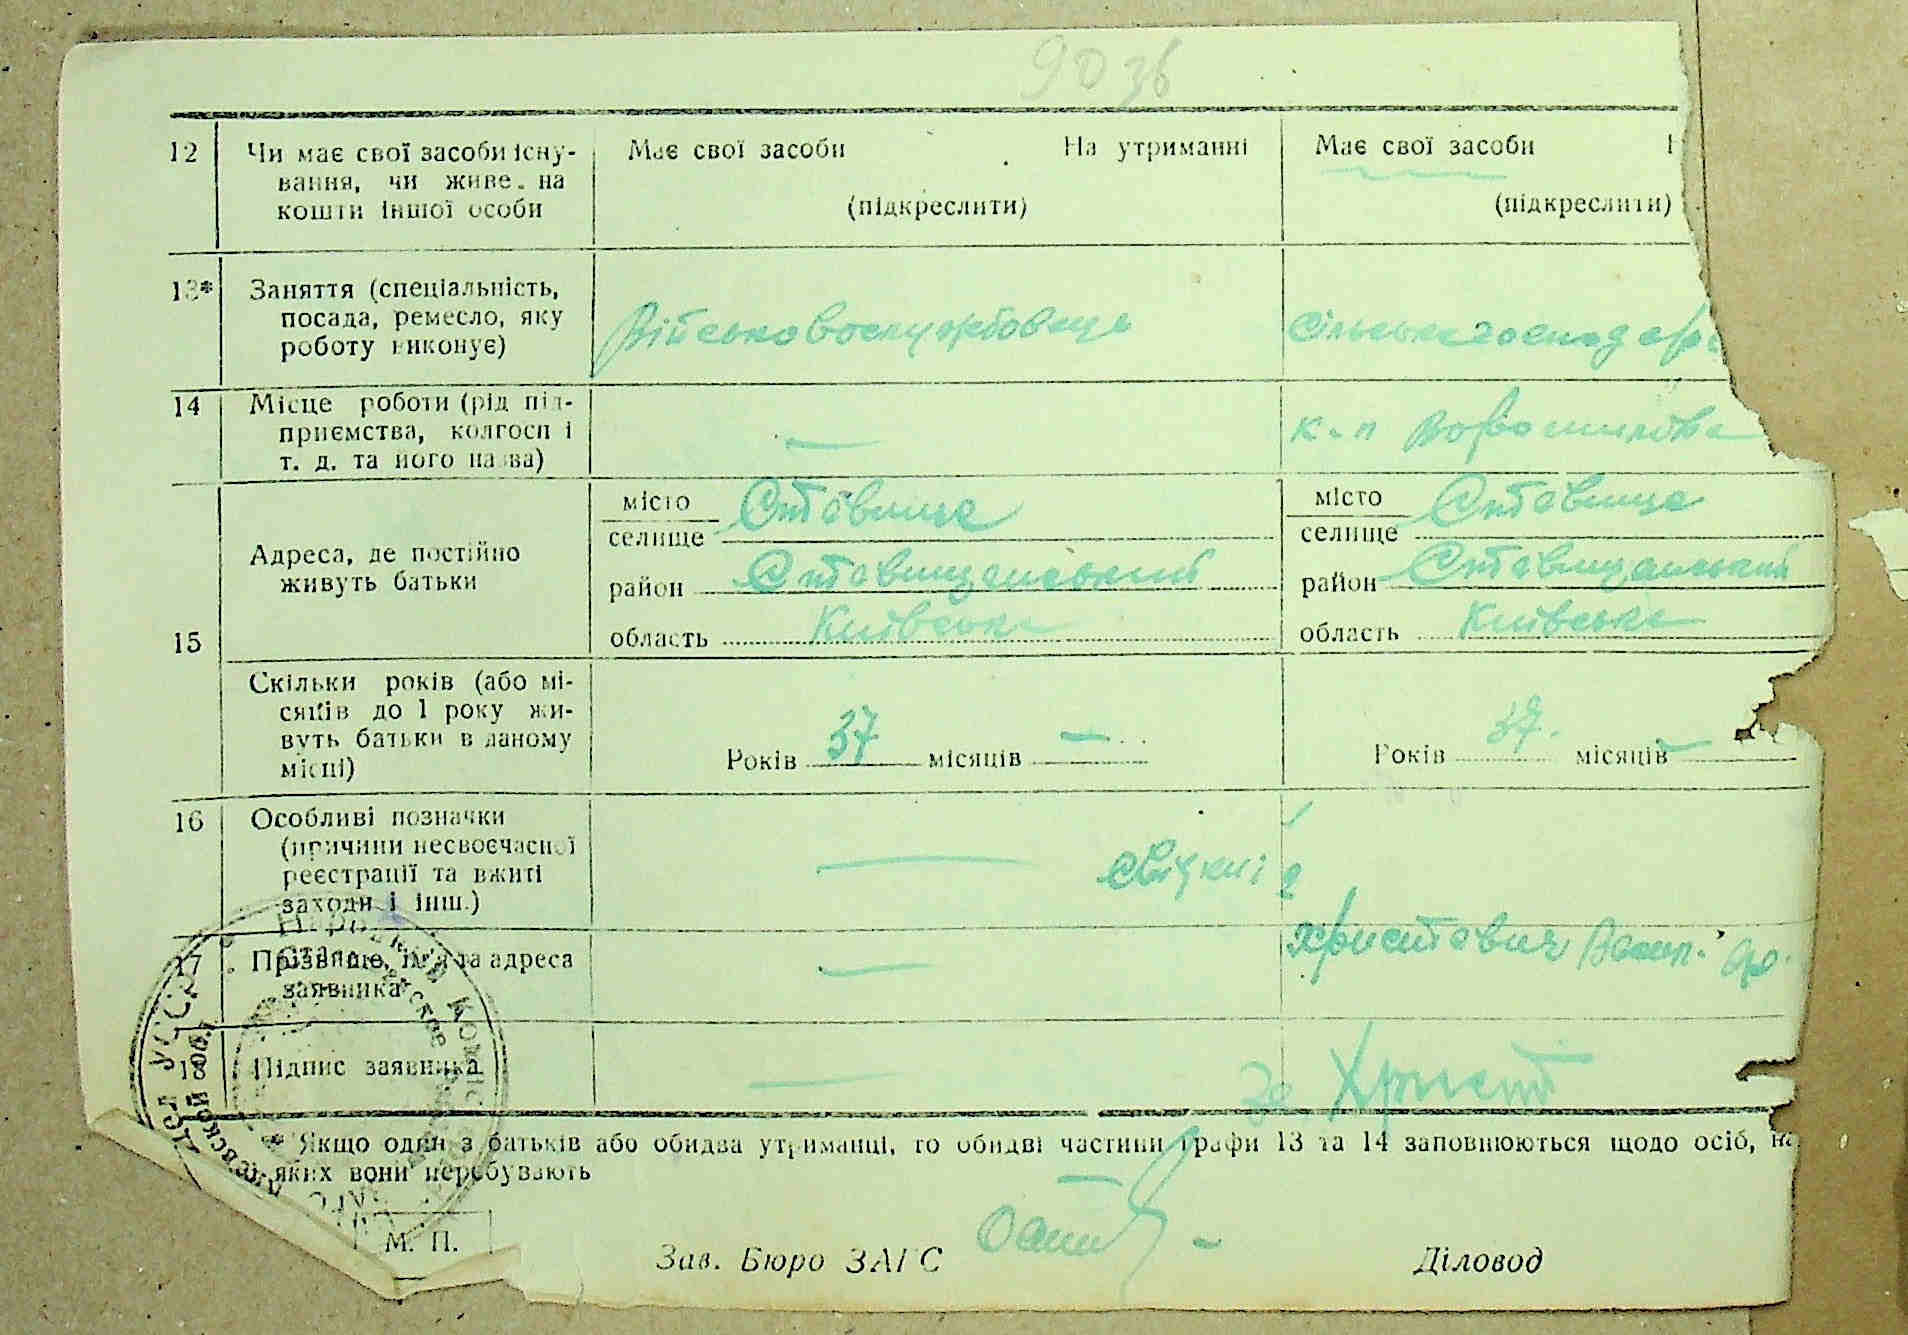 90 зв
12 Чи має свої засоби існу-
вання, чи живе на
кошти іншої особи
Має свої засоби На утриманні
(підкреслити)
Має свої засоби Н
(підкреслити)
13* Заняття (спеціальність,
посада, ремесло, яку
роботу виконує)
Військовослужбовець
Сільське господар
14 Місце роботи (рід під-
приємства, колгосп і
т. д. та його назва)
—
к-п Ворошилова
15
Адреса, де постійно
живуть батьки
місто Ставище
селище
район Ставищанський
область Київська
місто Ставище
селище
район Ставищанський
область Київська
Скільки років (або мі-
сяців до 1 року жи-
вуть батьки в даному
місці)
Років 37 місяців —
Років 37. місяців —
16 Особливі позначки
(причини несвоєчасної
реєстрації та вжиті
заходи і інш.)
—
свідки
17 Прізвище, ім'я та адреса
заявника
—
Христович
18 Підпис заявника
—
За Христ
* Якщо один з батьків або обидва утриманці, то обидві частини графи 13 та 14 заповнюються щодо осіб, на
яких вони перебувають
М. П.
Зав. Бюро ЗАГС
Діловод